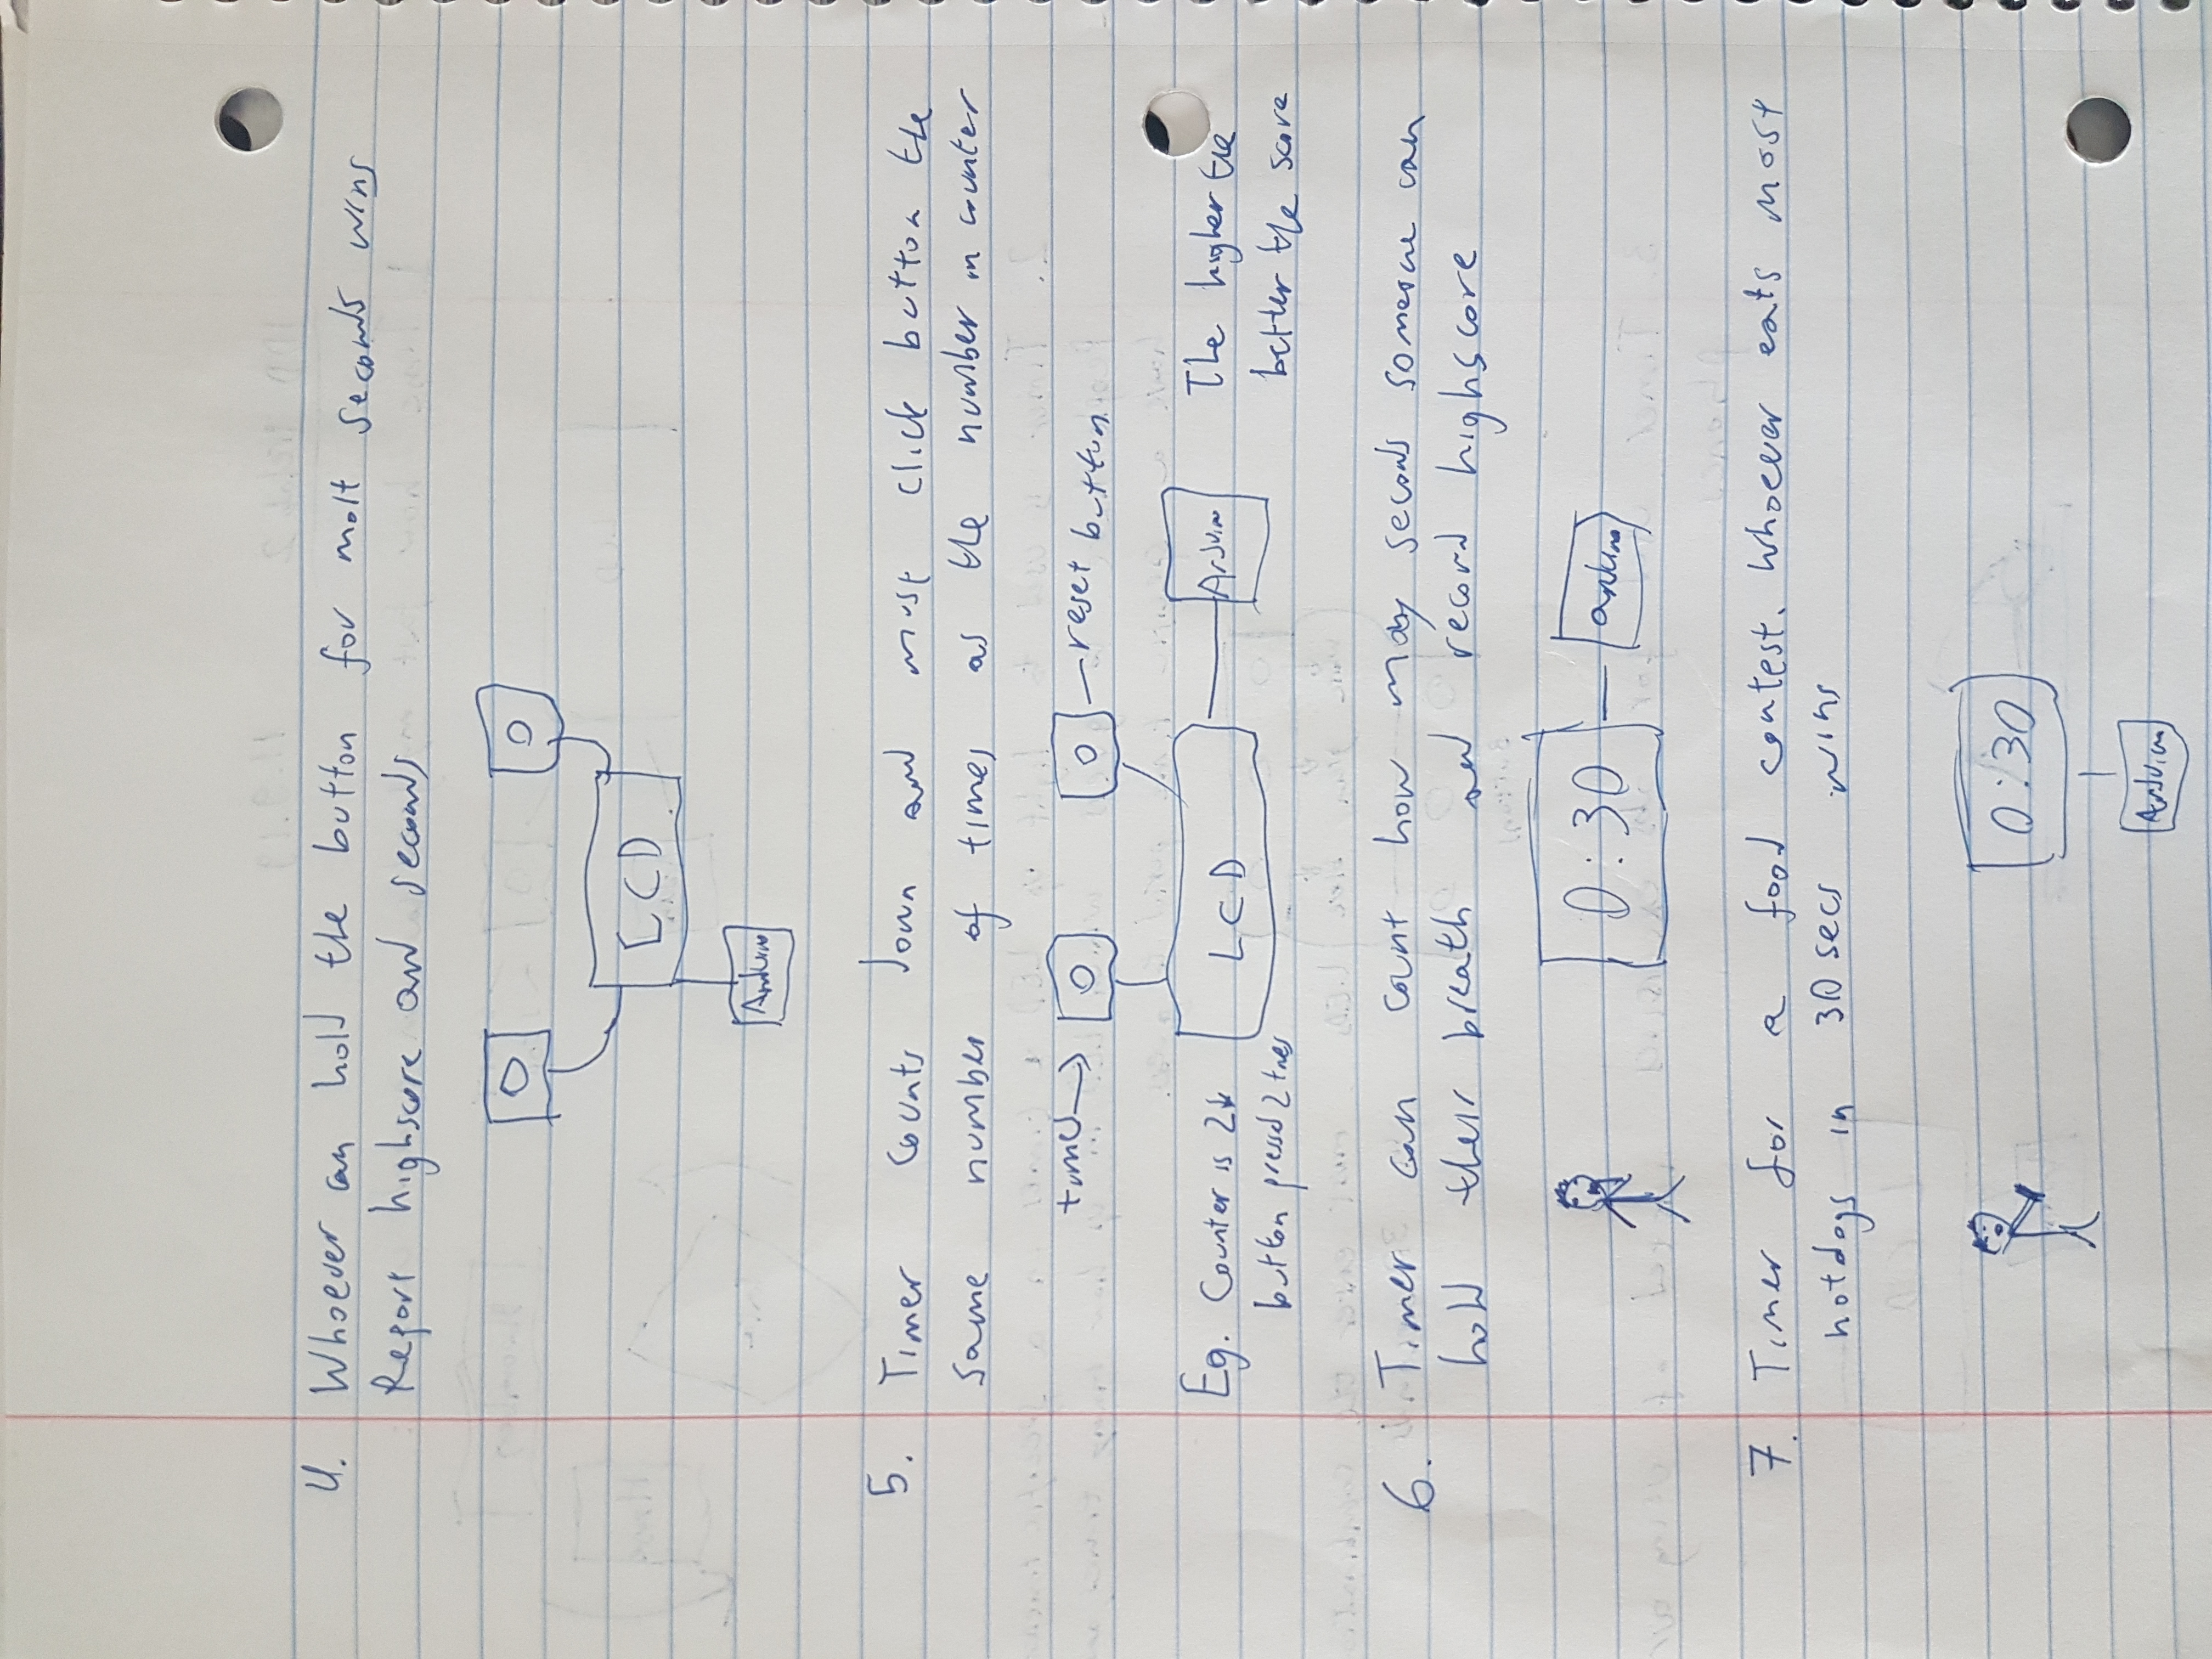 4. Whoever can hold the button for most seconds wins
Report highscore and seconds
LCD
Arduino
5. Timer counts down and must click button the
same number of times as the number in counter
timer
reset button
Eg. Counter is 2
button pressed 2 times
LCD
Arduino
The higher the
better the score
6. Timer can count how many seconds someone can
hold their breath and record highscore
0:30
arduino
7. Timer for a food contest. Whoever eats most
hotdogs in 30 secs wins
0:30
Arduino